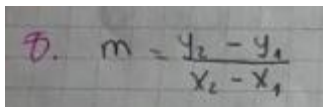 8. m = y₂ - y₁ / x₂ - x₁